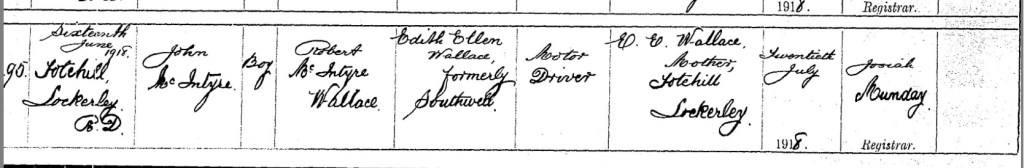 1918 Registrar.
95.
Sixteenth
June
1918.
Totehill,
Lockerley
R. D.
John
Mc Intyre.
Boy
Robert
Mc Intyre
Wallace.
Edith Ellen
Wallace,
formerly
Southwell.
Motor
Driver
E. E. Wallace,
Mother,
Totehill
Lockerley
Twentieth
July
1918.
Josiah
Munday.
Registrar.